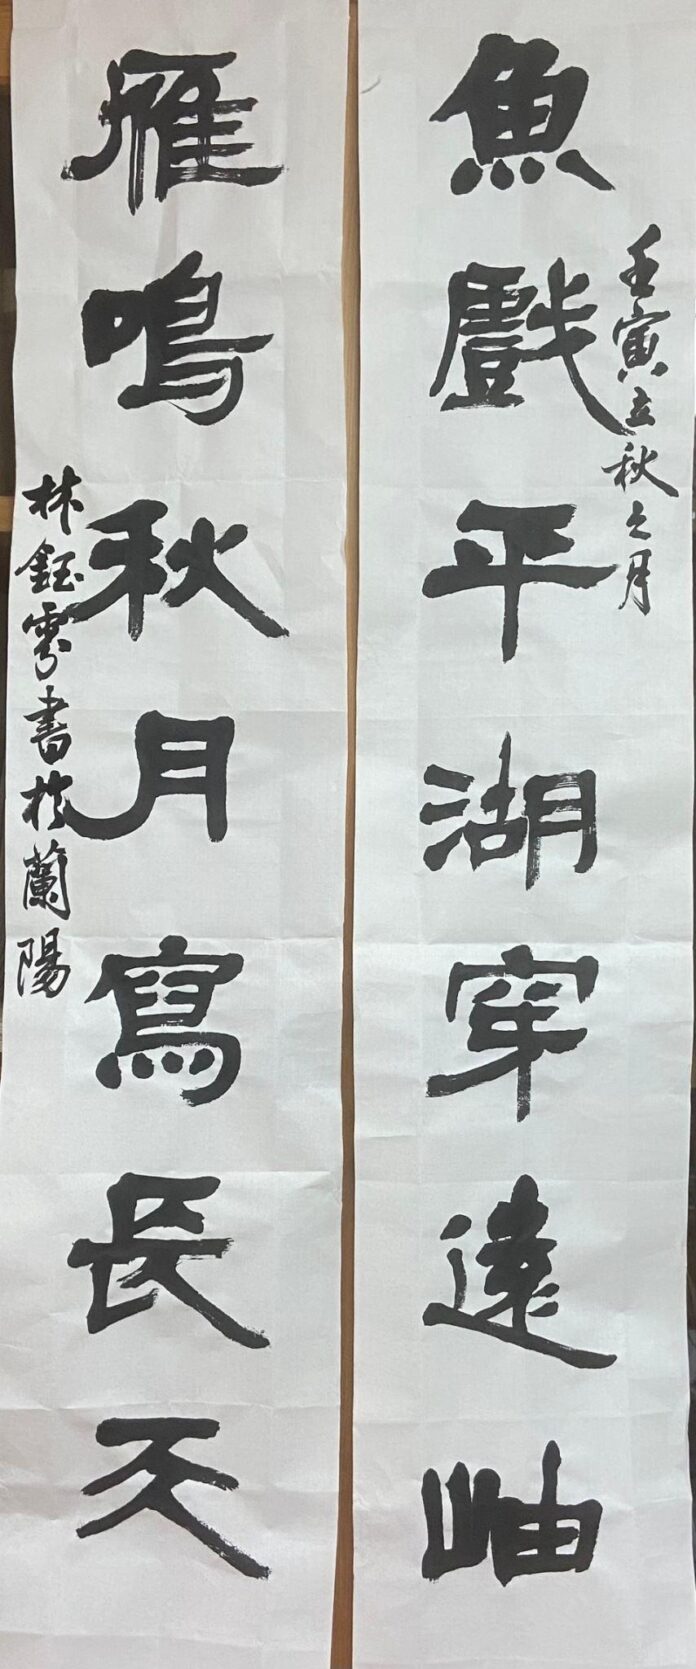 魚戲平湖穿遠岫
壬寅立秋之月
雁鳴秋月寫長天
林鈺雰書於蘭陽